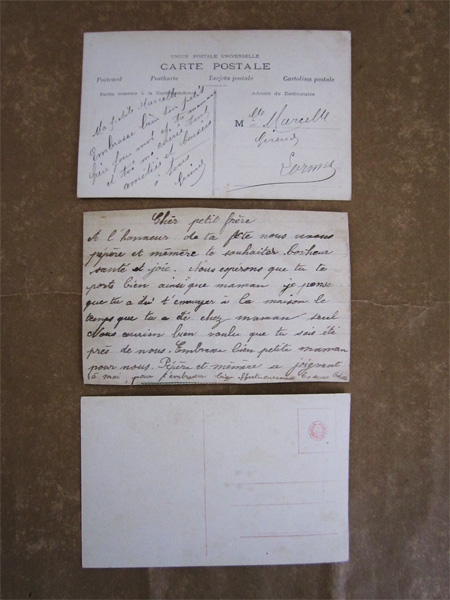 UNION POSTALE UNIVERSELLE
CARTE POSTALE
Postcard Postkarte Tarjeta postale Cartolina postale
Adresse du Destinataire
Ma petite Marcelle
Embrasse bien ton petit
frère pour moi et ta mémé
et toi ma chérie
amitiés et baisers
à tous
Mlle Marcelle
Giraud
Cher petit frère
A l'honneur de ta fête nous venons
pépère et mémère te souhaiter bonheur
santé et joie. Nous espérons que tu te
porte bien ainsi que maman je pense
que tu a dû t'ennuyer à la maison le
temps que tu a été chez maman seul
Nous aurien bien voulu que tu sois été
près de nous. Embrasse bien petite maman
pour nous. Pépère et mémère se joignent
à moi pour t'embrasser bien